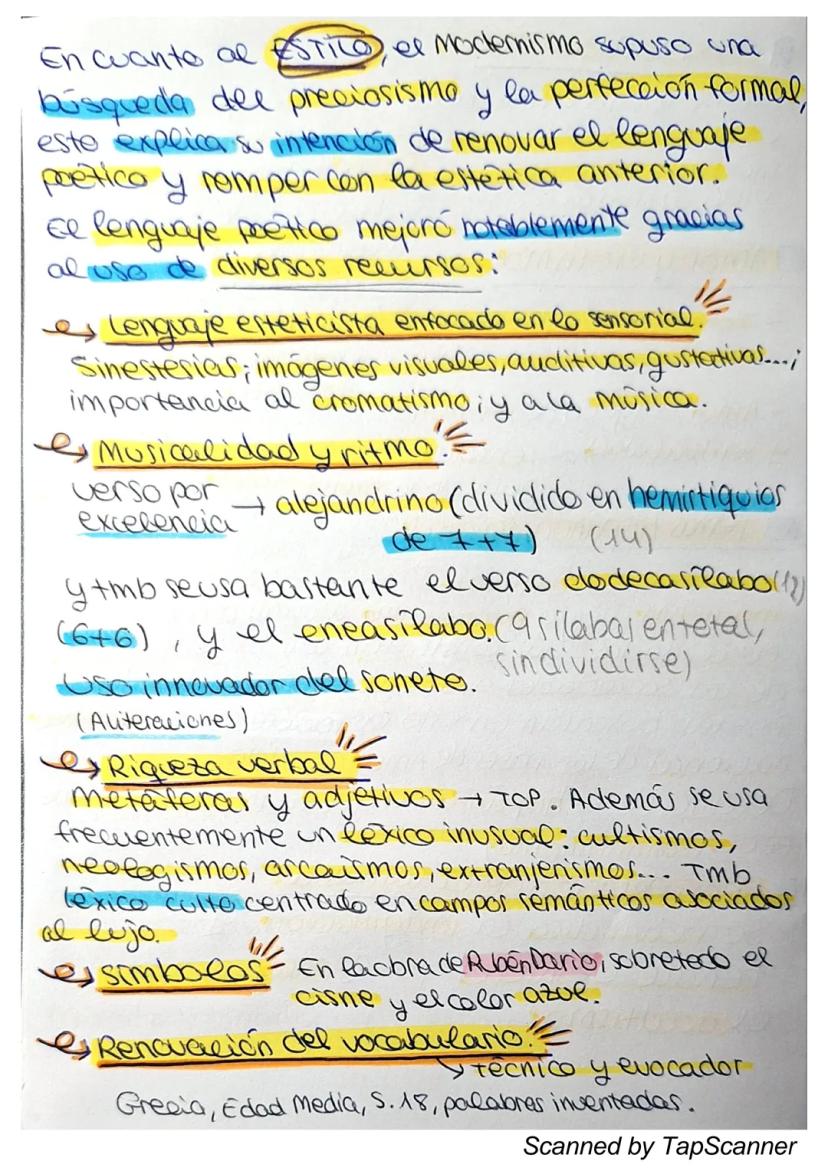 En cuanto al ESTILO, el Modernismo supuso una
búsqueda del preciosismo y la perfección formal,
esto explica su intención de renovar el lenguaje
poético y romper con la estética anterior.
El lenguaje poético mejoró notablemente gracias
al uso de diversos recursos:
Lenguaje esteticista enfocado en lo sensorial.
Sinestesias; imágenes visuales, auditivas, gustativas...;
importancia al cromatismo; y a la música.
Musicalidad y ritmo.
verso por
excelencia → alejandrino (dividido en hemistiquios
de 7+7) (14)
y tmb se usa bastante el verso dodecasílabo (12)
(6+6), y el eneasílabo. (9 sílabas en total,
sin dividirse)
Uso innovador del soneto.
(Aliteraciones)
Riqueza verbal
Metáforas y adjetivos → TOP. Además se usa
frecuentemente un léxico inusual: cultismos,
neologismos, arcaísmos, extranjerismos... Tmb
léxico culto centrado en campos semánticos asociados
al lujo.
símbolos En la obra de Rubén Darío, sobretodo el
cisne y el color azul.
Renovación del vocabulario.
técnico y evocador
Grecia, Edad Media, S. 18, palabras inventadas.
Scanned by TapScanner